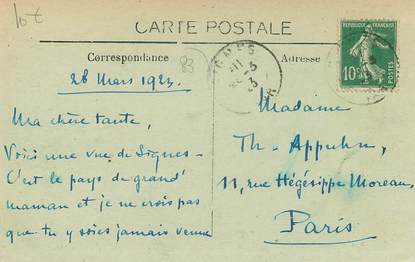 lot
CARTE POSTALE
Correspondance
Adresse
83
28 Mars 1923.
Ma chère tante,
Voici une vue de Signes -
C'est le pays de grand'
maman et je ne crois pas
que tu y sois jamais venue
SIGNES
RÉPUBLIQUE FRANÇAISE
10c
POSTES
Madame
Th. Appuhn,
11, rue Hégésippe Moreau,
Paris